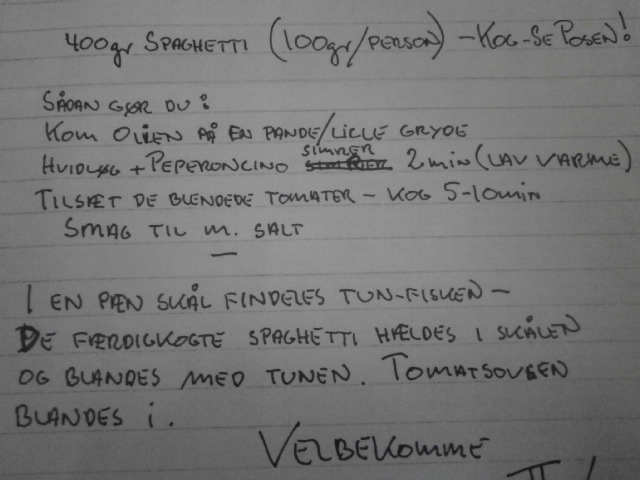 400gr SPAGHETTI (100gr/PERSON) - KOG - SE POSEN!
SÅDAN GØR DU:
KOM OLIEN PÅ EN PANDE/LILLE GRYDE
SIMRER
HVIDLØG + PEPERONCINO 2 min (LAV VARME)
TILSÆT DE BLENDEDE TOMATER - KOG 5-10 min
SMAG TIL M. SALT
—
I EN PÆN SKÅL FINDELES TUN-FISKEN -
DE FÆRDIGKOGTE SPAGHETTI HÆLDES I SKÅLEN
OG BLANDES MED TUNEN. TOMATSOVSEN
BLANDES i.
VELBEKOMME